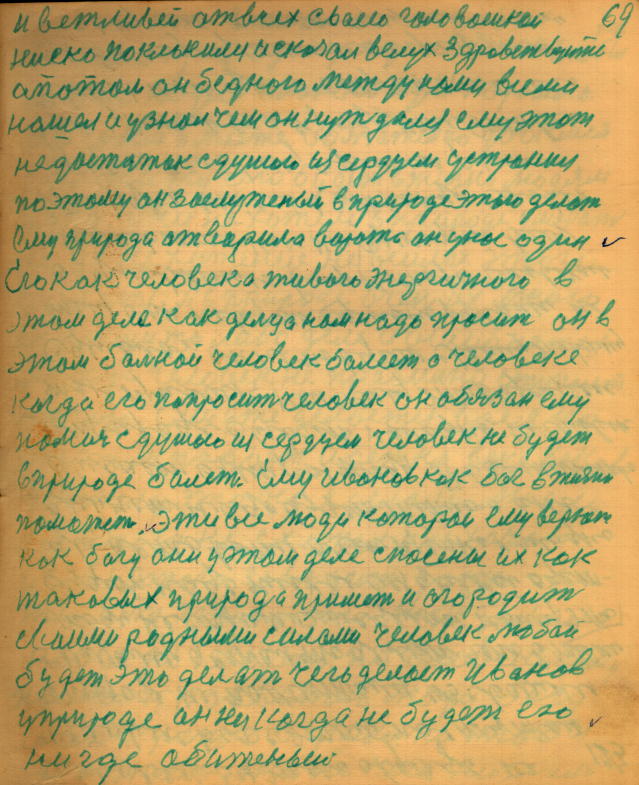 69
и ветливей отвсех своею головошкой
ниско поклонили и сказал велух здравствуйти
а потом он бедного между нами всеми
нашел и узнал чем он нуждался ему этот
недостаток с душою из сердцем устранил
поэтому он заслуженый в природе этого делат
Ему природа отварила ворота он у нас один
Его как человека живого энергичного в
этом деле как дельца нам надо просит он в
этом балной человек балеет о человеке
когда его попросит человек он обязан ему
помич с душою из сердцем человек не будет
в природе балет. Ему Иванов как бог в жизни
поможет. Эти все люди которои ему верют
как богу они у этом деле спосены их как
таковых природа примет и огородит
своими родными силами человек любой
будет это делат чего делает Иванов
у природе он ни когда не будет ею
нигде обиженый